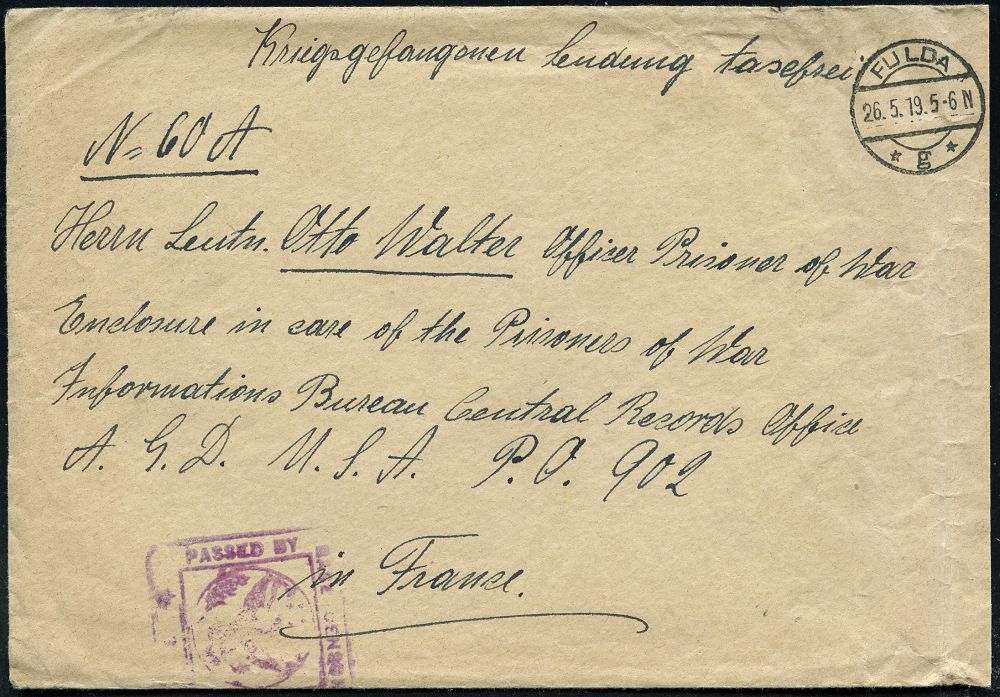 Kriegsgefangenen Sendung taxefrei
FULDA
26. 5. 19. 5-6 N
* g *
N= 60 A
Herrn Leutn. Otto Walter Officer Prisoner of War
Enclosure in care of the Prisoners of War
Informations Bureau Central Records Office
A. G. D. U. S. A. P. O. 902
in France.
PASSED BY
BASE CENSOR